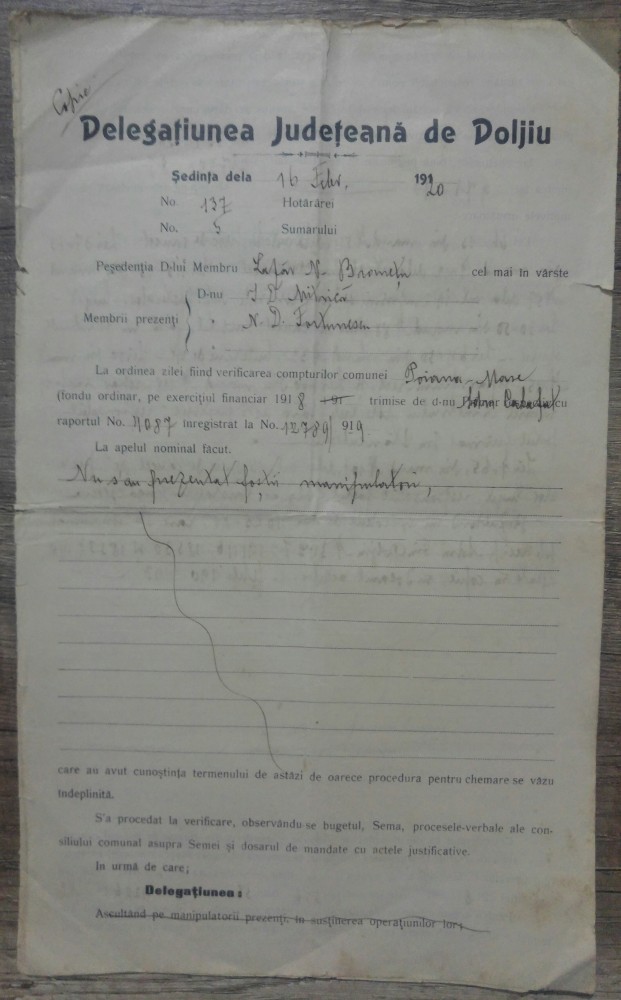 Copie
Delegaţiunea Judeţeană de Doljiu
Şedinţa dela 16 Febr. 1920
No. 137 Hotărârei
No. 5 Sumarului
Peşedenţia D-lui Membru Lazăr N. cel mai în vârste
D-nu I. D. Mitrică
Membrii prezenţi " N. D. Fortunescu
La ordinea zilei fiind verificarea compturilor comunei Poiana-Mare
(fondu ordinar, pe exerciţiul financiar 1918 -91 trimise de d-nu cu
raportul No. 4087 inregistrat la No. 12789/919
La apelul nominal făcut.
Nu s'au prezentat foştii manipulatori,
care au avut cunoştinţa termenului de astăzi de oarece procedura pentru chemare se văzu
îndeplinită.
S'a procedat la verificare, observându-se bugetul, Sema, procesele-verbale ale con-
siliului comunal asupra Semei şi dosarul de mandate cu actele justificative.
In urmă de care;
Delegaţiunea:
Ascultând pe manipulatorii prezenţi, în susţinerea operaţiunilor lor;